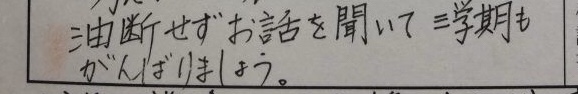 油断せずお話を聞いて三学期も
がんばりましょう。